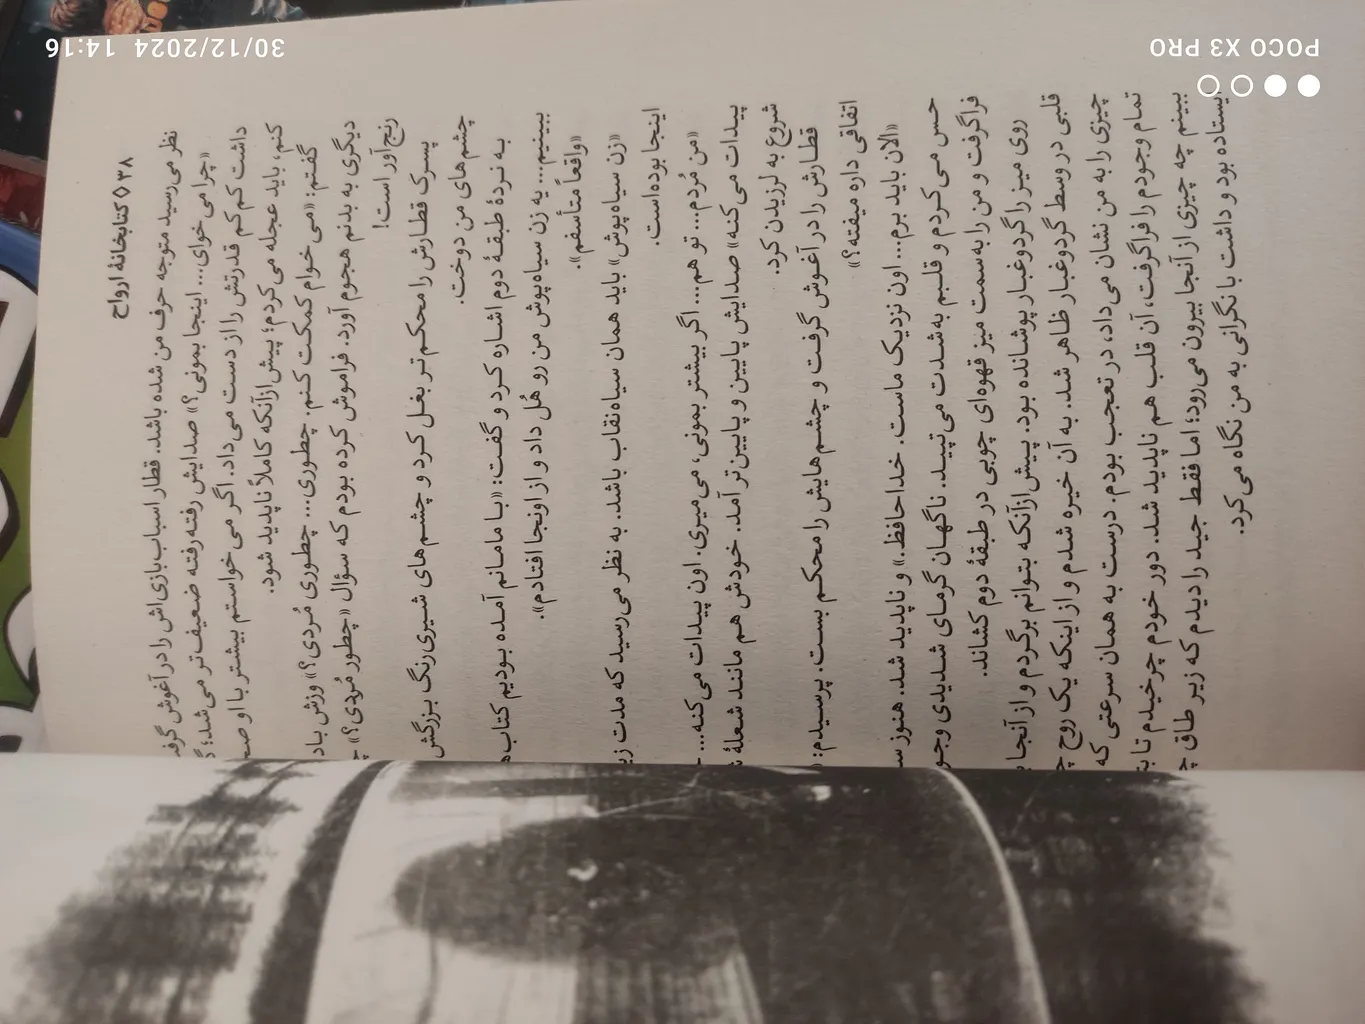 ۳۸ ◊ کتابخانهٔ ارواح
نظر می‌رسید متوجه حرف من شده باشد. قطار اسباب‌بازی‌اش را در آغوش گرف
«چرا می‌خوای... اینجا بمونی؟» صدایش رفته رفته ضعیف‌تر می‌شد؛
داشت کم‌کم قدرتش را از دست می‌داد. اگر می‌خواستم بیشتر با او صح
کنم، باید عجله می‌کردم؛ پیش‌ازآنکه کاملاً ناپدید شود.
گفتم: «می‌خوام کمکت کنم. چطوری... چطوری مُردی؟» وزش باد
دیگری به بدنم هجوم آورد. فراموش کرده بودم که سؤال «چطور مُردی؟»
رنج‌آور است!
پسرک قطارش را محکم‌تر بغل کرد و چشم‌های شیری‌رنگ بزرگش
چشم‌های من دوخت.
به نردهٔ طبقهٔ دوم اشاره کرد و گفت: «با مامانم آمده بودیم کتاب‌ه
ببینیم... یه زن سیاه‌پوش من رو هُل داد و از اونجا افتادم».
«واقعاً متأسفم».
«زن سیاه‌پوش» باید همان سیاه‌نقاب باشد. به نظر می‌رسید که مدت زی
اینجا بوده‌است.
«من مُردم... تو هم... اگر بیشتر بمونی، می‌میری. اون پیدات می‌کنه...
پیدات می‌کنه» صدایش پایین و پایین‌تر آمد. خودش هم مانند شعلهٔ ش
شروع به لرزیدن کرد.
قطارش را در آغوش گرفت و چشم‌هایش را محکم بست. پرسیدم:
اتفاقی داره میفته؟»
«الان باید برم... اون نزدیک ماست. خداحافظ.» و ناپدید شد. هنوز س
حس می‌کردم و قلبم به‌شدت می‌تپید. ناگهان گرمای شدیدی وجو
فراگرفت و من را به‌سمت میز قهوه‌ای چوبی در طبقهٔ دوم کشاند.
روی میز را گردوغبار پوشانده بود. پیش‌ازآنکه بتوانم برگردم و از آنجا ب
قلبی در وسط گردوغبار ظاهر شد. به آن خیره شدم و از اینکه یک روح چ
چیزی را به من نشان می‌داد، در تعجب بودم. درست به همان سرعتی که
تمام وجودم را فراگرفت، آن قلب هم ناپدید شد. دور خودم چرخیدم تا بت
ببینم چه چیزی از آنجا بیرون می‌رود؛ اما فقط جید را دیدم که زیر طاق چ
ایستاده بود و داشت با نگرانی به من نگاه می‌کرد.
POCO X3 PRO
30/12/2024 14:16